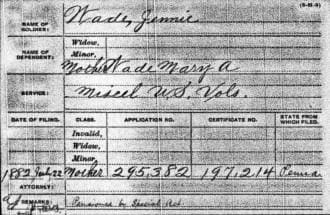 (3-2-3)
NAME OF SOLDIER: Wade, Jennie
NAME OF DEPENDENT: Widow,
Minor,
Mother Wade Mary A
SERVICE: Miscel U.S. Vols.
DATE OF FILING. CLASS. APPLICATION NO. CERTIFICATE NO. STATE FROM WHICH FILED.
Invalid,
Widow,
Minor,
1882 July 22 Mother 295,382 197,214 Penna
ATTORNEY:
REMARKS: Pensioned by Special Act.